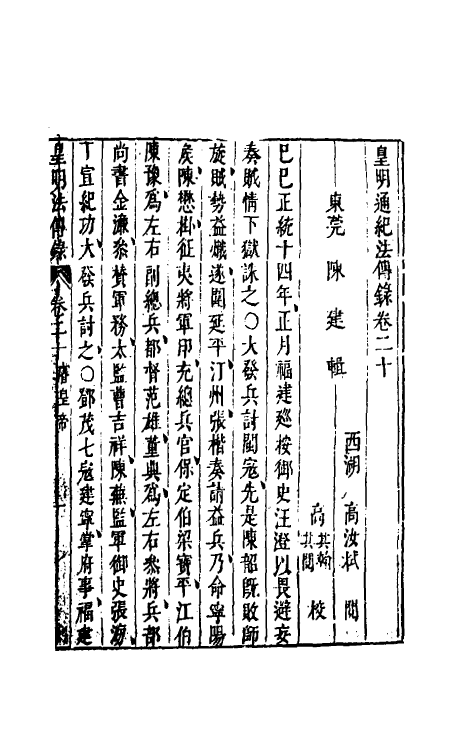 皇明通紀法傳錄卷二十
東莞 陳建 輯
西湖 高汝栻 閱
高其翰
校
己巳正統十四年正月福建巡按御史汪澄以畏避妄
奏賊情下獄誅之○大發兵討閩寇先是陳韶旣敗師
旋賊勢益熾遂圍延平汀州張楷奏請益兵乃命寧陽
侯陳懋掛征夷將軍印充總兵官保定伯梁寶平江伯
陳豫爲左右副總兵都督范雄董興爲左右參將兵部
尚書金濂參贊軍務太監曹吉祥陳蕪監軍御史張海
丁宣紀功大發兵討之○鄧茂七寇建寧掌府事福建
皇明法傳錄 卷二十 睿皇帝